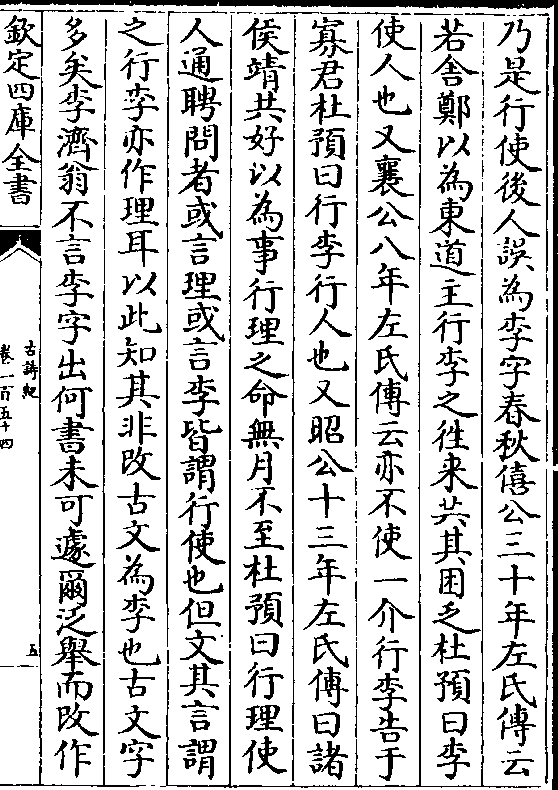 乃是行使後人誤為李字春秋僖公三十年左氏傳云
若舎鄭以為東道主行李之徃来共其困乏杜預曰李
使人也又襄公八年左氏傳云亦不使一介行李告于
寡君杜預曰行李行人也又昭公十三年左氏傳曰諸
侯靖共好以為事行理之命無月不至杜預曰行理使
人通聘問者或言理或言李皆謂行使也但文其言謂
之行李亦作理耳以此知其非改古文為李也古文字
多矣李濟翁不言李字出何書未可遽爾泛舉而改作
欽定四庫全書
古詩紀
卷一百五十四
五